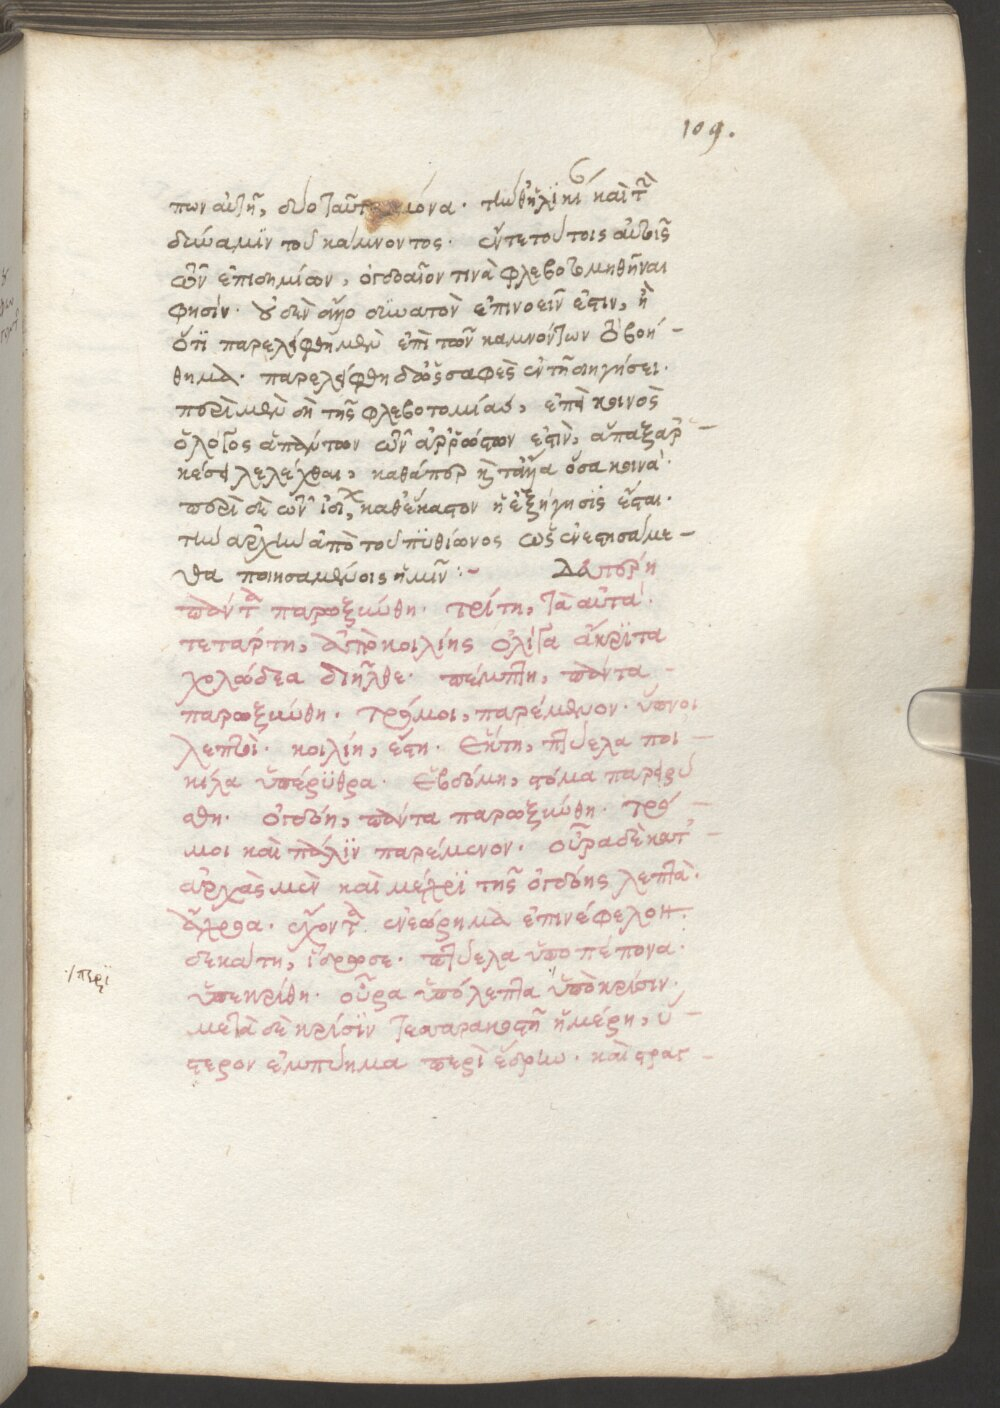 109.
πων αὐτῆ, δύο ταῦτα μόνα. τὴν ἡλικίαν καὶ τὴν
δύναμϊν τοῦ κάμνοντος. ἔν τε τούτοις αὐτοῖς
τῶν ἐπιδημίων, ὀγδοαῖον τινὰ φλεβοτμηθῆναι
φησίν. οὐδὲν ἄλλο δυνατὸν ἐπινοεῖν ἐστιν, ἢ
ὅτϊ παρελείφθη μὲν ἐπὶ τῶν καμνόντων τὸ βοή-
θημα. παρελείφθη δ' ὡς σαφὲς ἐν τῇ διηγήσει.
περὶ μὲν δὴ τῆς φλεβοτομίας, ἐπεὶ κοινὸς
ὁ λόγος ἁπάντων τῶν ἀρρώστων ἐστὶν, ἅπαξ ἀρ-
κέσει λελέχθαι, καθάπερ καὶ τἄλλα ὅσα κοινά.
περὶ δὲ τῶν ἰδίων, καθ' ἕκαστον ἡ ἐξήγησϊς ἔσται.
τὴν ἀρχὴν ἀπὸ τοῦ πϋθίωνος ὡς ἐνεστησάμε-
θα ποιησαμένοις ἡμῖν :- Δευτέρη
πάντα παρωξύνθη. τρίτη, τὰ αὐτά.
τετάρτη, ἀπὸ κοιλίης ὀλίγα ἄκρϊτα
χολώδεα διῆλθε. πέμπτη, πάντα
παρωξύνθη. τρόμοι, παρέμενον. ὕπνοι
λεπτοί. κοιλίη, ἔστη. ἕκτη, πτύελα ποι-
κίλα ὑπέρϋθρα. ἑβδόμη, στόμα παρειρύ
σθη. ὀγδόη, πάντα παρωξύνθη. τρό-
μοι καὶ πάλϊν παρέμενον. οὖρα δὲ κατ'
ἀρχὰς μὲν καὶ μέχρϊ τῆς ὀγδόης λεπτὰ.
ἄχροα. εἶχον τὰ ἐνεώρημα ἐπινέφελον.
δεκάτη, ἵδρωσε. πτύελα ὑποπέπονα.
ὑπεκρίθη. οὖρα ὑπόλεπτα ὑπὸ κρίσιν.
μετὰ δὲ κρίσϊν τεσσαρακοστῇ ἡμέρῃ, ὕ-
στερον ἐμπύημα περὶ ἕδρην. καὶ στραγ-
περὶ